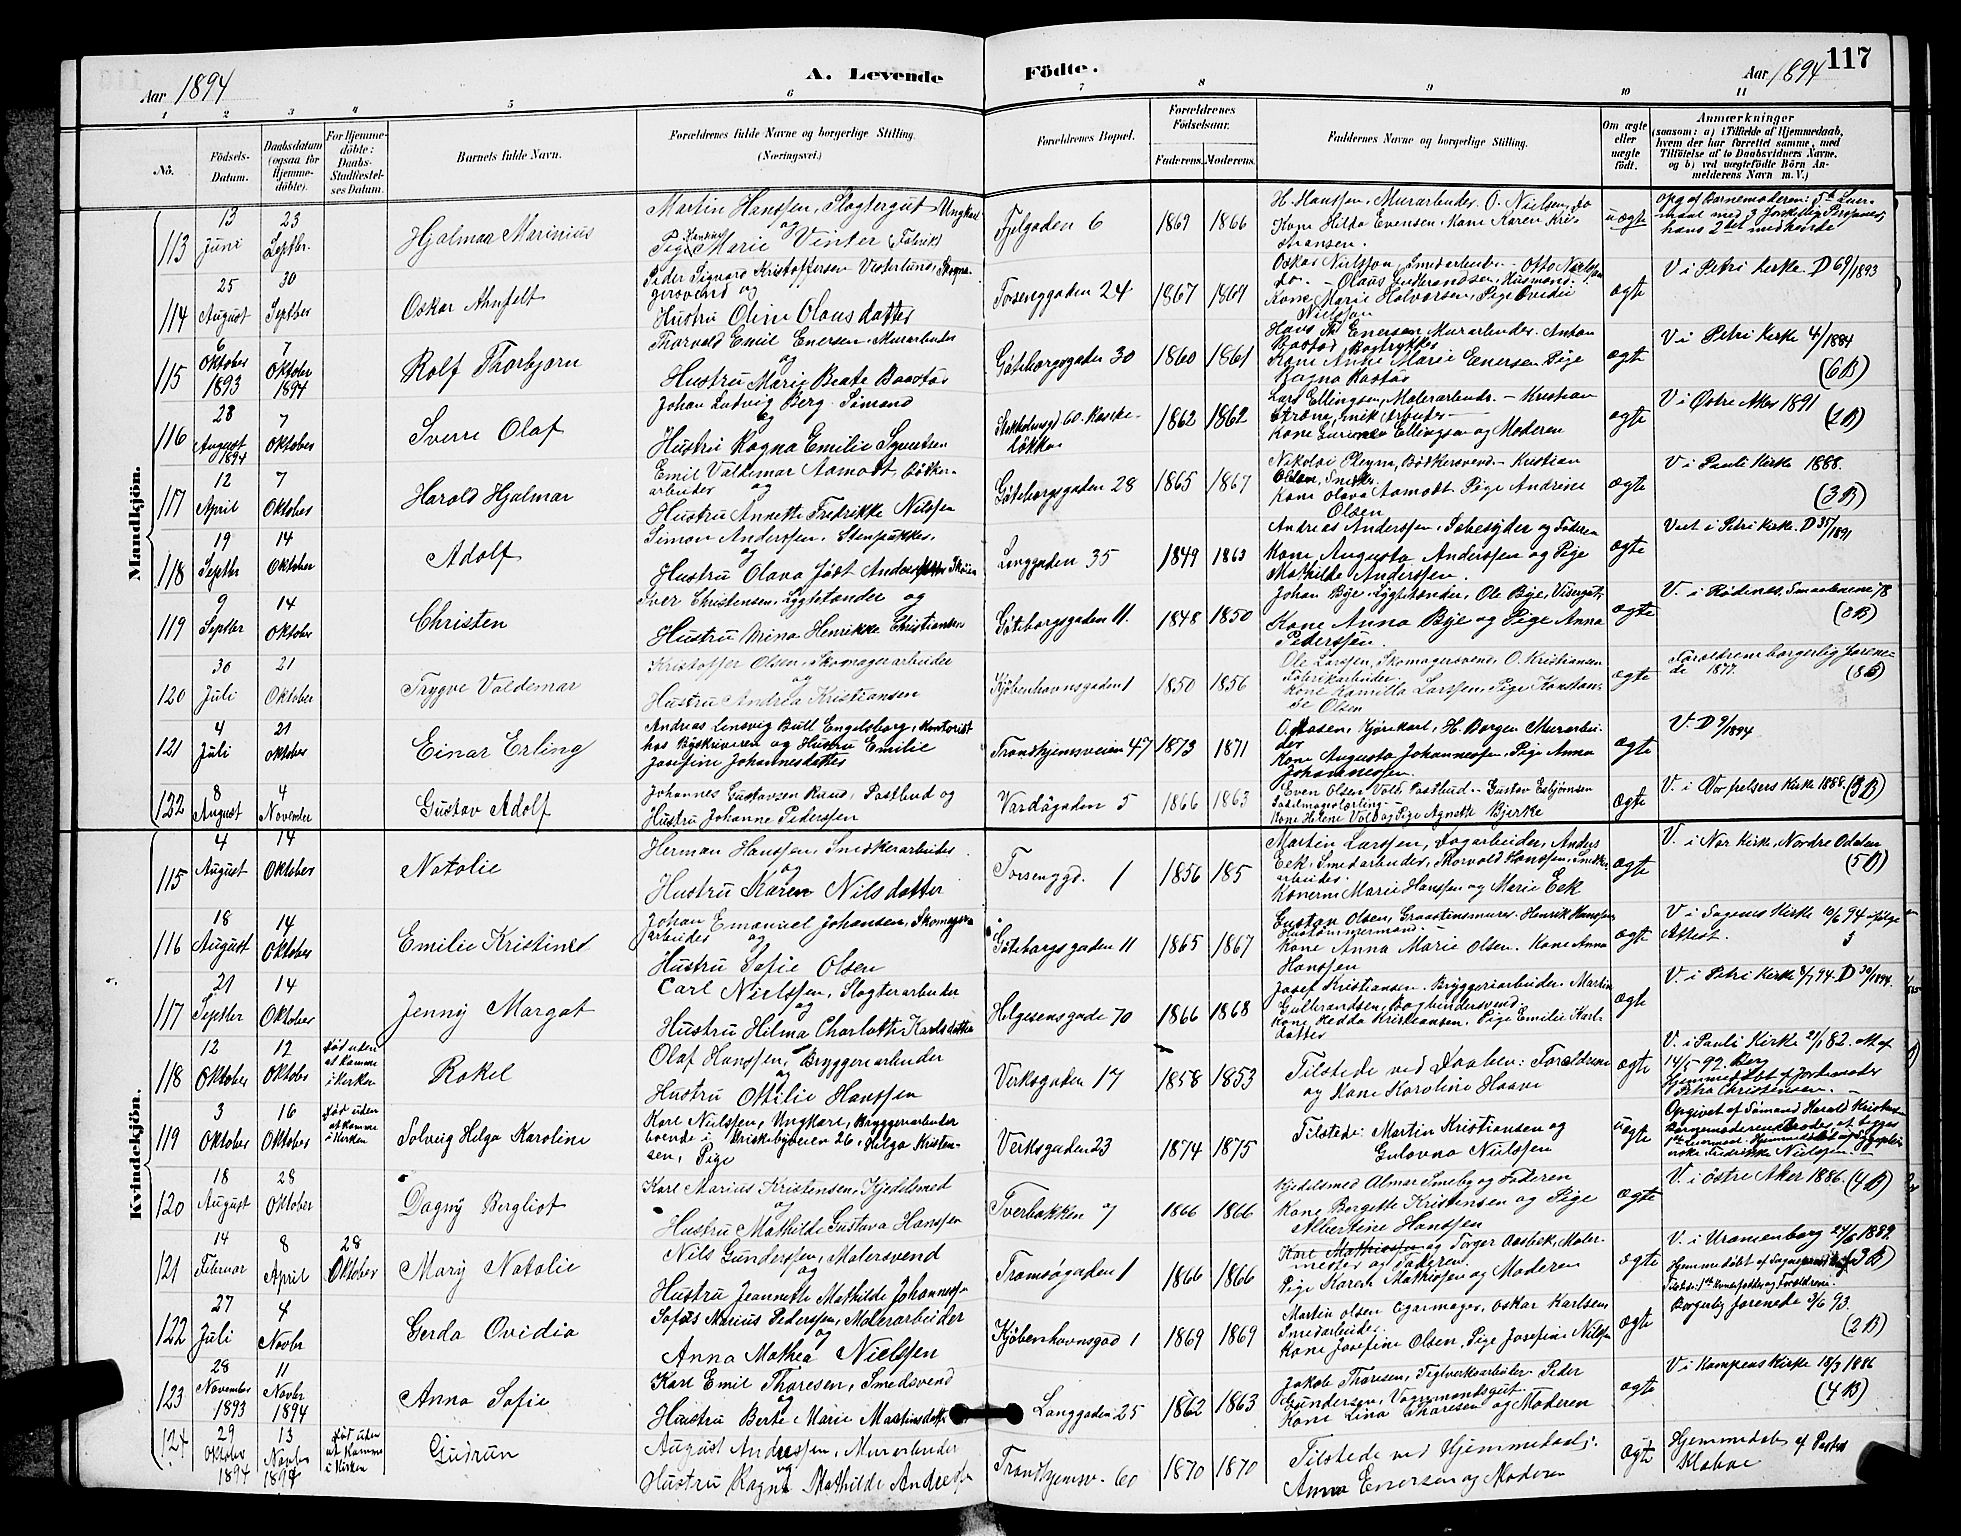 117
Aar 1894
A. Levende Födte.
Aar 1894
1 2 3 4 5 6 7 8 9 10 11
No.
Födsels-Datum.
Daabsdatum (ogsaa for Hjemme-döbte).
For Hjemme-döbte: Daabs-Stadfæstel-ses Datum.
Barnets fulde Navn.
Forældrenes fulde Navne og borgerlige Stilling.
(Næringsvei.)
Forældrenes Bopæl.
Forældrenes Födselsaar.
Faderens. Moderens.
Faddernes Navne og borgerlige Stilling.
Om ægte eller uægte födt.
Anmærkninger
(saasom: a) i Tilfælde af Hjemmedaab, hvem der har forrettet samme, med Tilföielse af to Daabsvidners Navne, og b) ved uægtefödte Börn An-melderens Navn m. V.)
Mandkjön.
113 13 Juni 23 Septbr. Hjalmar Marinius
Martin Hanssen, Slagtergut, Ungkarl og
Pige Marie Vinter (Fabrik)
Fjelgaden 6 1869 1866
H. Hanssen, Murarbeider. O. Nielsen, do
Kone Hilda Evensen, Kone Karen Kri-
stiansen.
uægte
Opg af Barnemoderen: 5te Leier-
maal med 3 forskjellige Personer,
hans 2det
114 25 August 30 Septber Oskar Ahnfelt
Peder Sigvard Kristoffersen Vesterlund,
og
Hustru Oline Olausdatter
Torsenggaden 24 1867 1869
Oskar Nielsson, Smedarbeider - Otto Nielsson
do. - Olaus Gulbrandsen, Husmand.
Kone Marie Halvorsen, Pige Ovidie
Nielsson
ægte
V i Petri Kirke. D 69/1893
115 6 Oktober 1893 7 Oktober 1894 Rolf Thorbjørn
Thorvald Emil Enersen, Murarbeider
og
Hustru Marie Beate Baastad
Göteborggaden 30 1860 1861
Hans Th. Enersen Murarbeider. Anton
Baastad Bogtrykker
Kone Anne Marie Enersen Pige
Ragna Baastad
ægte
V i Petri Kirke 4/1884
(6 B)
116 28 August 1894 7 Oktober Sverre Olaf
Johan Ludvig Berg. Sömand
og
Hustru Ragna Emilie Syvertsen
1862 1862
Lars Ellingsen, Malerarbeider. - Kristian
Kone Ellingsen og Moderen
ægte
V i Østre Aker 1891
117 12 April 7 Oktober Harald Hjalmar
Emil Valdemar Aamodt, Bödker-
arbeider og
Hustru Annette Fredrikke Nilssen
Göteborgsgaden 28 1865 1867
Nikolai Bödkersvend - Kristian
Olsen, Snedker
Kone Olava Aamodt Pige Andrine
Olsen
ægte
V i Pauli Kirke 1888.
(3 B)
118 19 Septbr 14 Oktober Adolf
Simon Anderssen, Stenpukker.
og
Hustru Olava
Langgaden 35 1849 1863
Andreas Anderssen, Sæbesyder og Faderen
Kone Augusta Anderssen og Pige
Mathilde Anderssen.
ægte
Viet i Petri Kirke. D 35/1891
119 9 Septbr 14 Oktober Christen
Iver Christensen, Lygtetænder og
Hustru Mina Henrikke Christiansen
Göteborgsgaden 11. 1848 1850
Johan Bye, Lygtetænder, Ole Bye, Visergut,
Kone Anna Bye og Pige Anna
Pederssen
ægte
V. i Rödenes, Smaalenene 78
120 30 Juli 21 Oktober Trygve Valdemar
Kristoffer Olsen, Skomagerarbeider
og
Hustru Andrea Kristiansen
Kjöbenhavnsgaden 1 1850 1856
Ole Larssen, Skomagersvend, O. Kristiansen
Fabrikarbeider.
Kone Kamilla Larssen, Pige Konstan-
se Olsen
ægte
Forældrene borgerlig forene-
de 1877. (8 B)
121 4 Juli 21 Oktober Einar Erling
Andreas Linsvig Bull Engelsborg, Kontorist
hos Byskriveren og Hustru Emilie
Josefine Johannesdatter
Trondhjemsveien 47 1873 1871
O. Aasen, Kjörekarl, H. Borgen Murarbei-
der
Kone Augusta Johannessen, Pige Anna
Johannessen.
ægte
V. D 9/1894
122 8 August 4 November Gustav Adolf
Johannes Gustavsen Ruud, Postbud og
Hustru Johanne Pederssen
Vardögaden 5 1866 1863
Even Olsen Vold, Postbud - Gustav Esbjørnsen
Sadelmagerlærling -
Kone Helene Vold og Pige Agnethe Bjerke
ægte
V. i Vor frelsers Kirke 1888. (3 B)
Kvindekjön.
115 4 August 14 Oktober Natalie
Herman Hanssen, Snedkerarbeider
og
Hustru Karen Nilsdatter
Torsenggd. 1 1856 185
Martin Larssen, Dagarbeider, Anders
Eek, Smedarbeider, Thorvald Hanssen, Snedker
arbeider.
Konerne Marie Hanssen og Marie Eek
ægte
V. i Nor Kirke, Nordre Odalen
(5 B)
116 18 August 14 Oktober Emilie Kristine
Johan Emanuel Johansen, Skomager-
arbeider og
Hustru Sofie Olsen
Göteborgsgaden 11 1865 1867
Gustav Olsen, Graastensmurer. Henrik Hanssen
Hustömmermand. -
Kone Anna Marie Olsen. Kone Anna
Hanssen
ægte
V i Sagenes Kirke 10/6 94 ifølge
Attest.
3
117 21 Septbr 14 Oktober Jenny Margot
Carl Nielssen, Slagterarbeider
og
Hustru Hilma Charlotte Karlsdatter
Helgesensgade 70 1866 1868
Josef Kristiansen. Bryggeriarbeider. Martin
Gulbrandsen, Bogbindersvend.
Kone Hedda Kristiansen, Pige Emilie Karls-
datter
ægte
V. i Petri Kirke 94. D 30/1894.
118 12 Oktober 12 Oktobr död uden at komme i Kirken Rakel
Olaf Hanssen, Bryggeriarbeider
og
Hustru Otilie Hanssen
Verksgaden 17 1858 1853
Tilstede ved Daaben: Forældrene
og Kone Karoline Haave
ægte
V. i Pauli Kirke 82.
14/5-92. Berg
Hjemmedöbt af Jordmoder
Petra Christensen.
119 3 Oktober 16 Oktober död uden at komme i Kirken Solveig Helga Karoline
Karl Nielssen, Ungkarl, Bryggeriarbeider
boende i Griskebyveien 26, Helga Kristen-
sen, Pige
Verksgaden 23 1874 1875
Tilstede: Martin Kristiansen og
Gulovna Nielssen
uægte
Opgivet af Sömand Harald Kristensen
1ste Leiermaal. Hjemmedöbt af
Fredrikke Nielssen.
120 18 August 28 Oktober Dagny Bergliot
Karl Marius Kristensen, Kjedelsmed
og
Hustru Mathilde Gustava Hanssen
Tverbakken 7 1866 1866
Kjedelsmed Olmar Smeby og Faderen
Kone Borgette Kristensen og Pige
Albertine Hanssen
ægte
V. i östre Aker 1886. (4 B)
121 14 Februar 8 April 28 Oktober Mary Natalie
Nils Gunderssen, Malersvend
og
Hustru Jeannette Mathilde Johannessen
Tromsögaden 1 1866 1866
Karl Mathiassen og Torger Aasbek, Maler-
mester og Faderen.
Pige Karen Mathissen og Moderen
ægte
V. i Uranienborg 24/6 1889.
Hjemmedöbt af
122 27 Juli 4 Novbr Gerda Ovidia
Sofus Marius Pederssen, Malerarbeider
og
Anna Mathea Nielssen
Kjöbenhavnsgad 1 1869 1869
Martin Olsen Cigarmager, Oskar Karlsen,
Smedarbeider.
Kone Josefine Olsen, Pige Josefine Nilssen
ægte
Borgerlig forenede 3/6 93.
(2 B)
123 28 November 1893 11 Novbr 1894 Anna Sofie
Karl Emil Thoresen, Smedsvend
og
Hustru Berte Marie Martinsdatter
Langgaden 25 1862 1863
Jakob Thoresen, Teglverksarbeider Peder
Gundersen, Vognmandsgut.
Kone Lina Thoresen og Moderen
ægte
V i Kampens Kirke 18/3 1886
(4 B)
124 29 Oktober 1894 13 Novber 1894 död uden at komme i Kirken Gudrun
August Andressen, Murarbeider
og
Hustru Ragna Mathilde Andressen
Trondhjemsv. 60 1870 1870
Tilstede ved Hjemmedaab:
Anna Enersen og Moderen
ægte
Hjemmedöbt af Pastor
Klaboe